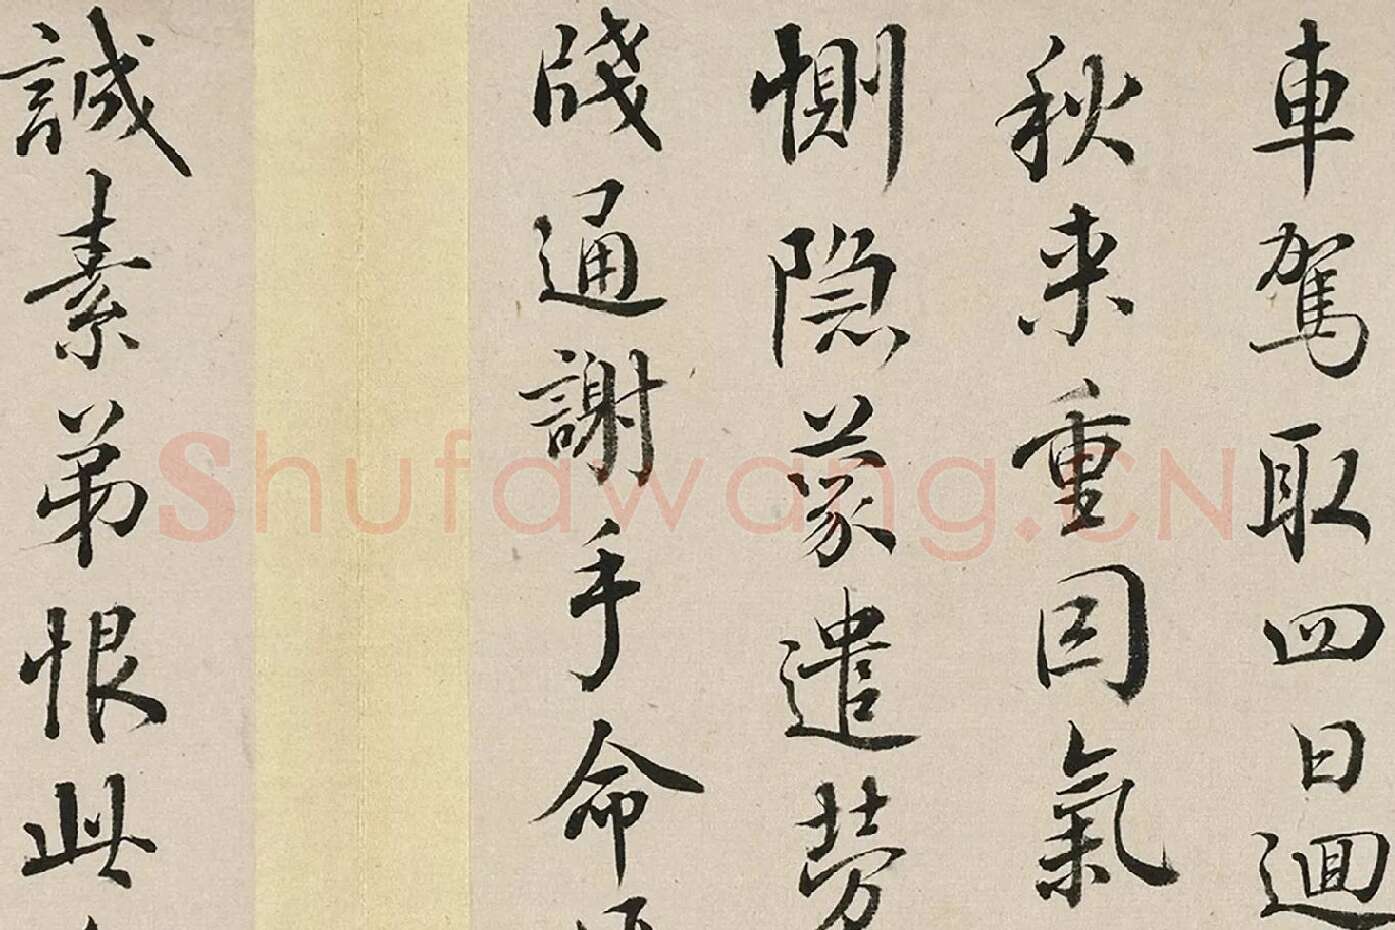 車駕取四日迴
秋来重因氣
惻隐蒙遣劳
牋通謝手命
誠素弟恨此
Shufawang.CN